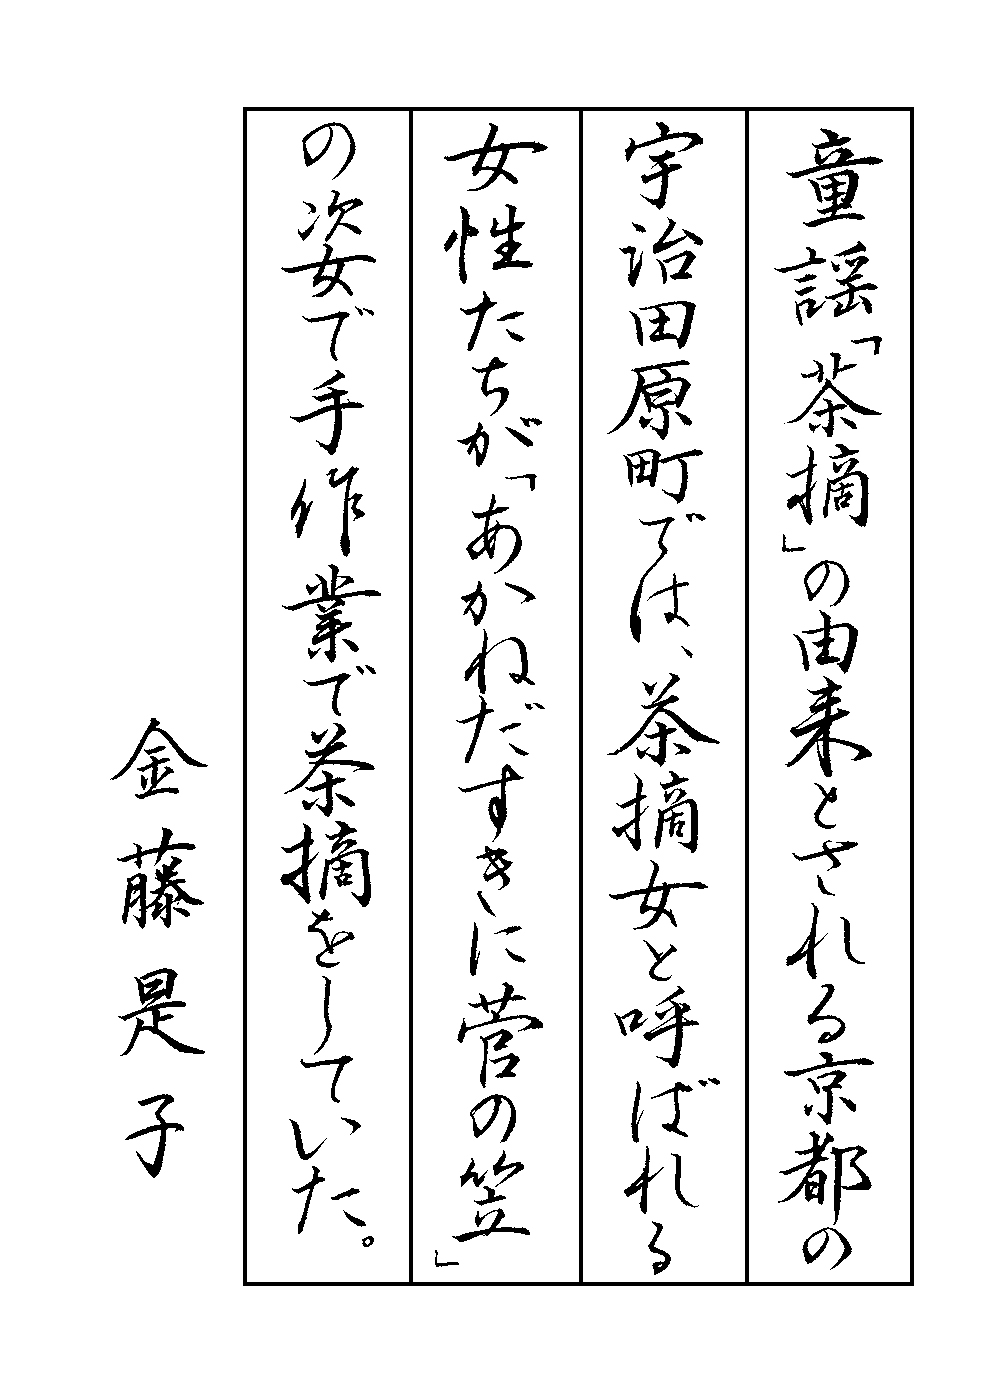 童謡「茶摘」の由来とされる京都の
宇治田原町では、茶摘女と呼ばれる
女性たちが「あかねだすきに菅の笠」
の姿で手作業で茶摘をしていた。
金藤是子